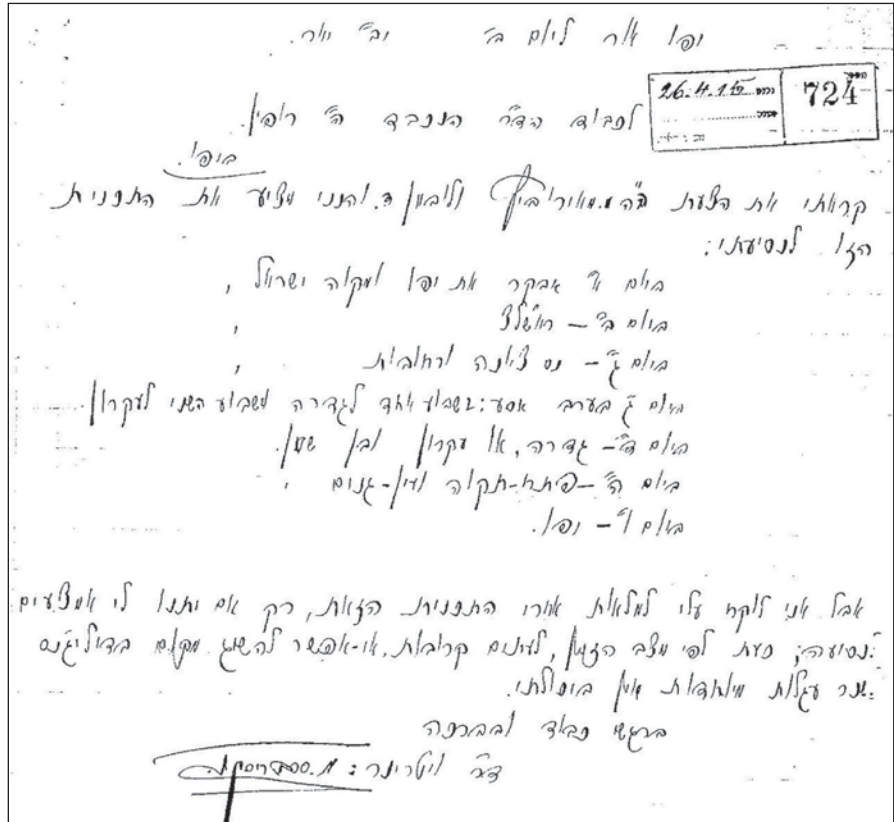 יפו אור ליום ב' יב' אייר.
26.4.15
724
לכבוד הד"ר הנכבד ה' רופין.
ביפו.
קראתי את הצעת ה"ה מ. מאירוביץ וליבמן ד. והנני מציע את התכנית
הזו לנסיעתי:
ביום א' אבקר את יפו ומקוה ישראל,
ביום ב' – ראשלצ,
ביום ג' – נס ציונה ורחובות,
ביום ג' בערב אסע: בשבוע אחד לגדרה ובשבוע השני לעקרון.
ביום ד' – גדרה, או עקרון ובן שמן.
ביום ה' – פתח-תקוה ועין-גנים,
ביום ו' – יפו.
אבל אני לוקח עלי למלאות אחרי התכנית הזאת, רק אם יתנו לי אמצעים
לנסיעה; כעת לפי מצב הזמן, לעתים קרובות, אי-אפשר להשיג מקום בדיליג'נס
שכר עגלות מיוחדות אין ביכולתי.
ברגשי כבוד ובברכה
ד"ר ויטרינר: מ.